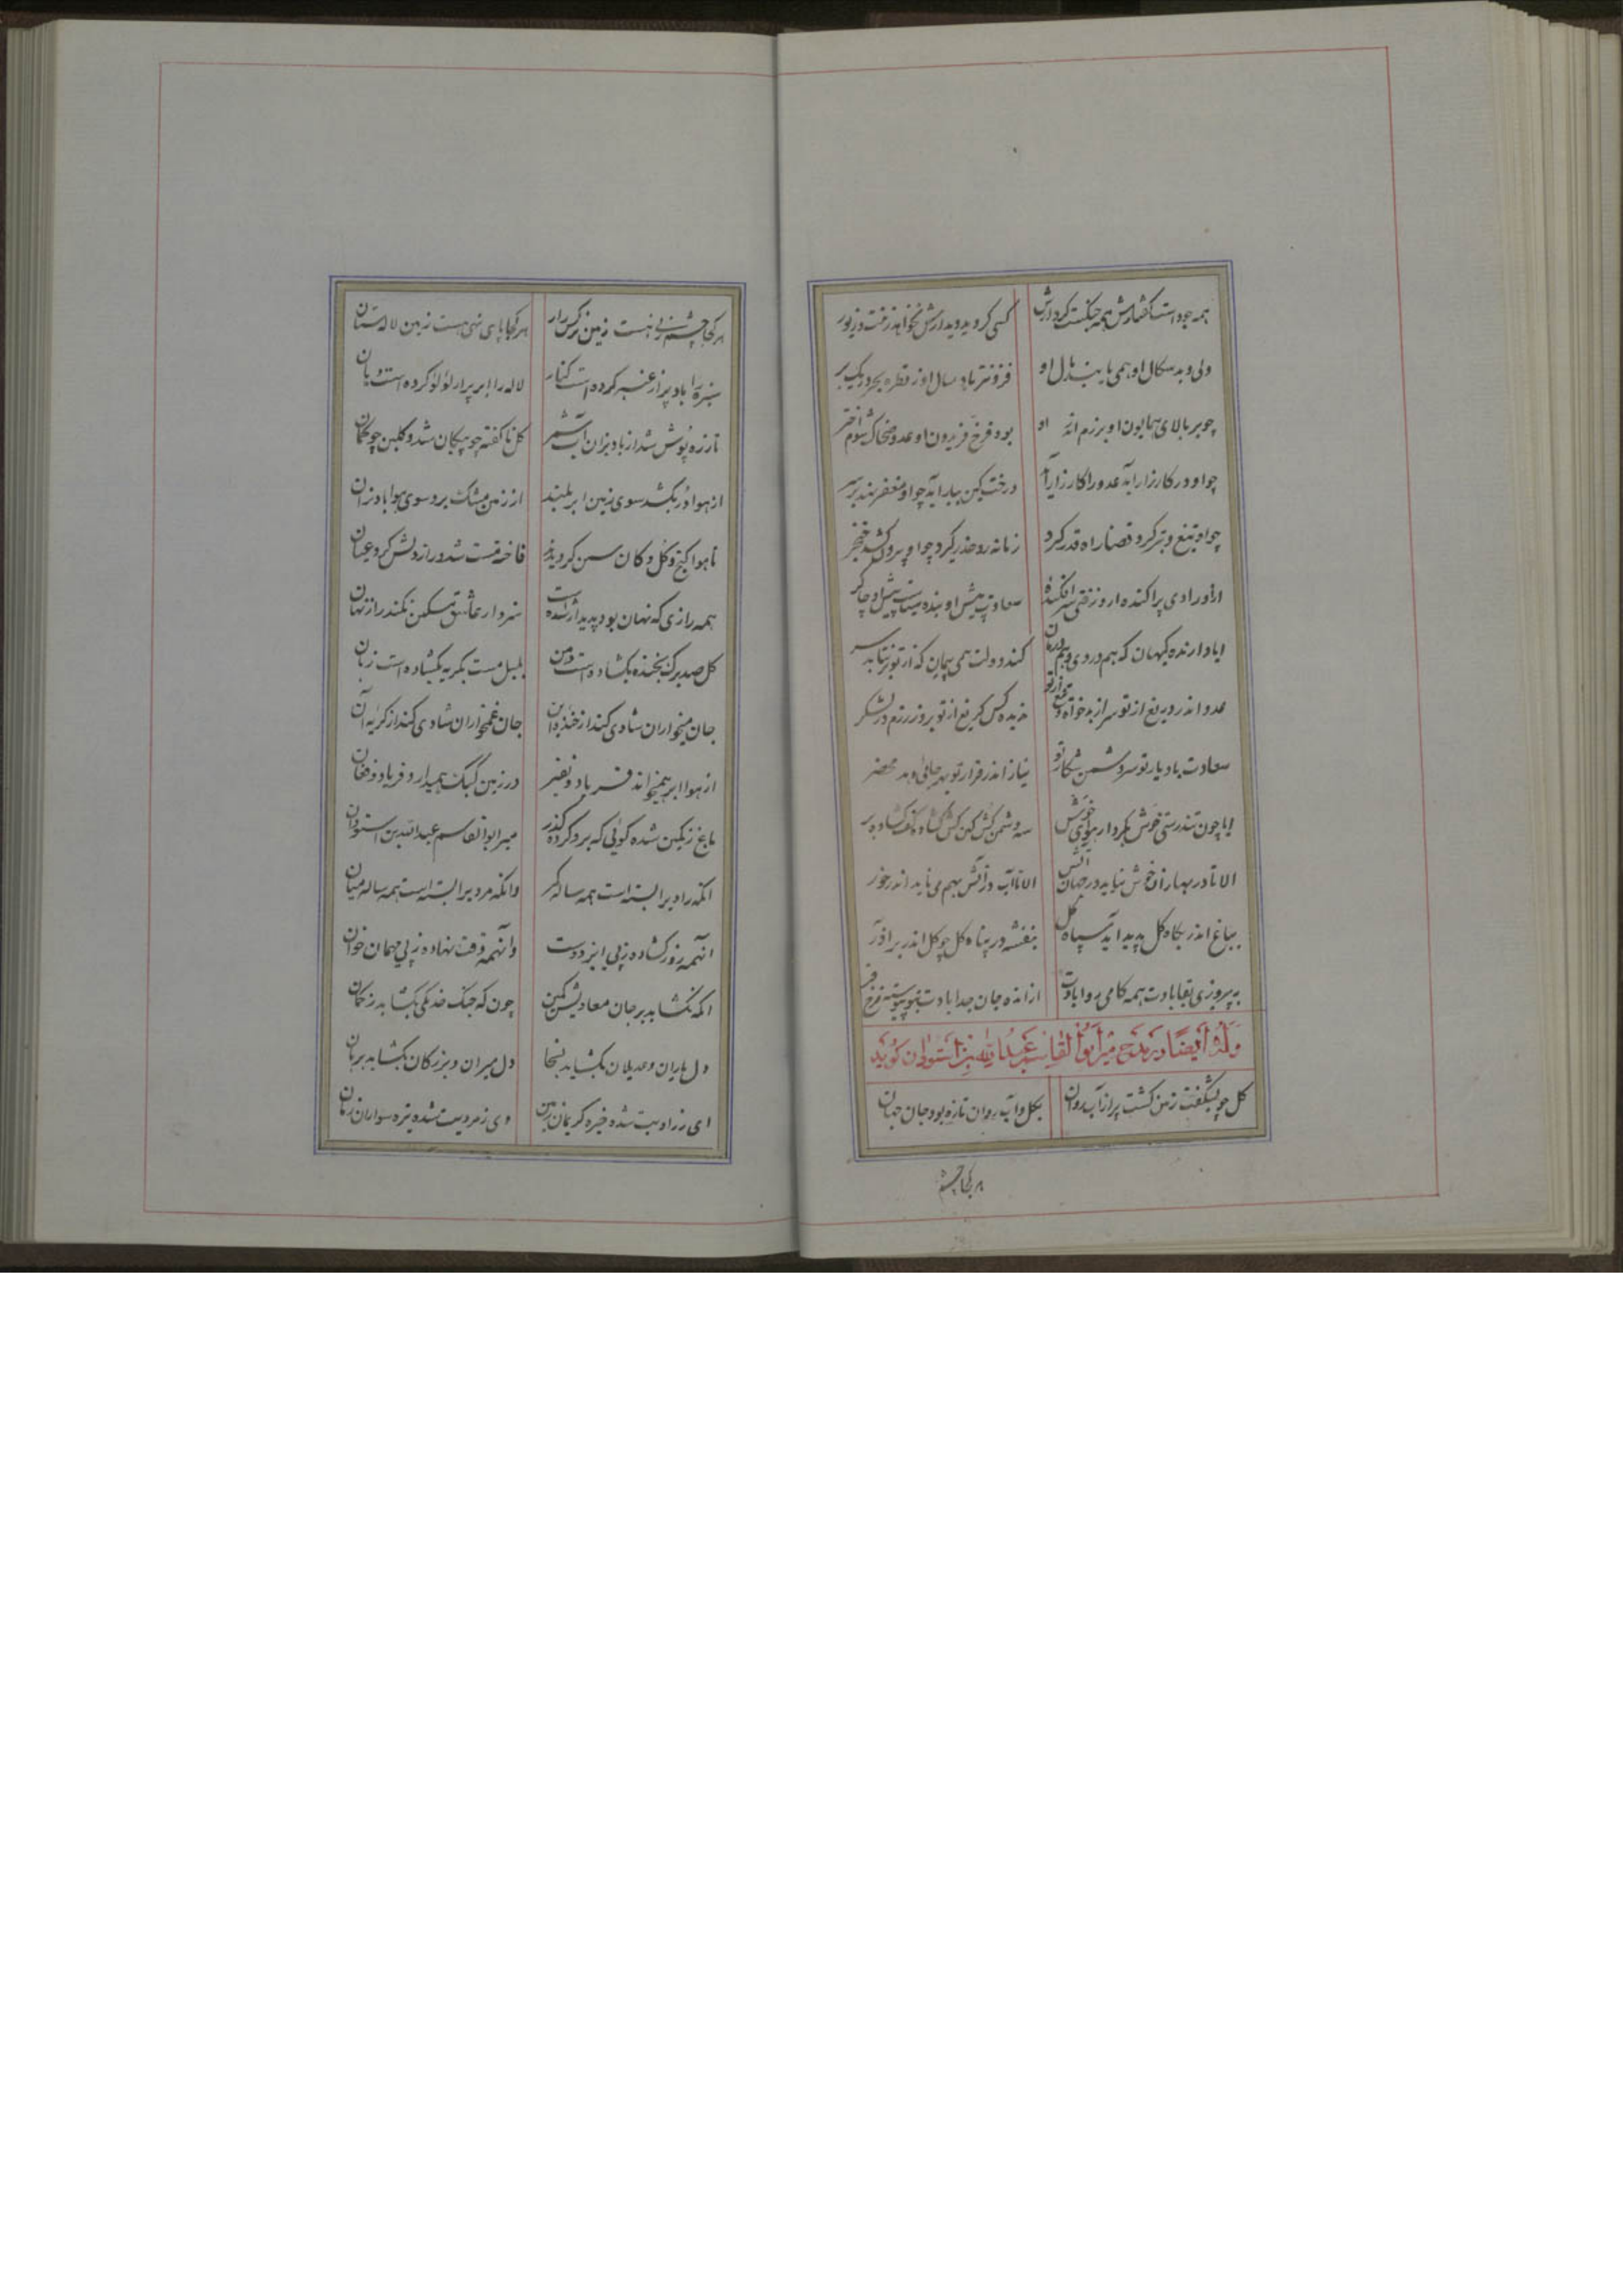 همه جود است گفتارش همه جنگست کردارش کسی کرد دید دیدارش نخواهد زفت و زیور
ولی و بدسگال او همی یابند بذل او فزونتر باد سال او ز قطره بحر و ریگ بر
چو بر بالای همایون او بر رزم او بود فرخ فریدون او عدو ضحاک شوم اختر
چو او در کارزار آید عدو را کارزار آید درخت کین ببار آید چو او مغفر نهد بر سر
چو او تیغ و تبر گیرد قضا راه قدر گیرد زمانه زو حذر گیرد چو او بیرون کشد خنجر
سعادت پیش او بنده
ایا دارنده کیهان که هم دردی و هم درمان کند دولت همی پیمان که از تو بر نتابد سر
عدو اندر دریغ از تو سر از بدخواه و تیغ از تو ندیده کس گریغ از تو بروز رزم در لشکر
سعادت باد یار تو سر دشمن شکار تو نیاز اندر فرار تو بهر جائی دهد محضر
ایا چون تندرستی خوش بکردار هوای خوش
الا تا در بهاران خوش نیاید در جهان آتش الا تا آب و آتش بهم می ناید اندر خور
بباغ اندر بگاه گل پدید آید سپاه گل بنفشه در پناه گل چو گل اندر بر آذر
به پیروزی بقا بادت همه کامی روا بادت از انده جان جدا بادت بتو پیوسته فرخ فر
وله ایضا در مدح میر ابوالقاسم عبدالله بن استولان گوید
گل چو بشکفت زمین گشت پر از آب روان بگل و آب روان تازه بود جان جهان
هر کجا چشم
هر کجا چشم زنی هست زمین نرگس زار هر کجا پای نهی هست زمین لاله ستان
سبزه را باد پر از عنبر کرده است کنار لاله را ابر پر از لؤلؤ کرده است دهان
تا زره پوش شد از باد بزان آب شمر گل ناکفته چو پیکان شد و گلبن چو کمان
از هوا در بکشد سوی زمین ابر بلند از زمین مشک برد سوی هوا باد بزان
فاخته مست شد و راز دلش کرد عیان
همه رازی که نهان بود پدیدار شده است سزد ار عاشق مسکین نکند راز نهان
گل صد برگ بخنده بگشاده است دهن بلبل مست بگریه بگشاده است زبان
جان میخواران شادی کند از خنده این جان غمخواران شادی کند از گریه آن
از هوا ابر همیخواند فریاد و نفیر در زمین کبک همیدارد فریاد و فغان
باغ رنگین شده گوئی که برو کرده گذر میر ابوالقاسم عبدالله بن استولان
آنکه رادیرا بسته است همه ساله کمر وانکه مردیرا بسته است همه ساله میان
آنهمه روز گشاده ز پی ایزد دست وانهمه وقت نهاده ز پی مهمان خوان
آنکه بگشاید بر جان معادیش کمین چون که جنگ خدنگی بگشاید ز کمان
دل یاران و عدیلان بگشاید بسخا دل میران و بزرگان بگشاید بزبان
ای ز رادیت شده خیره کریمان زمین وی ز مردیت شده تیره سواران زمان